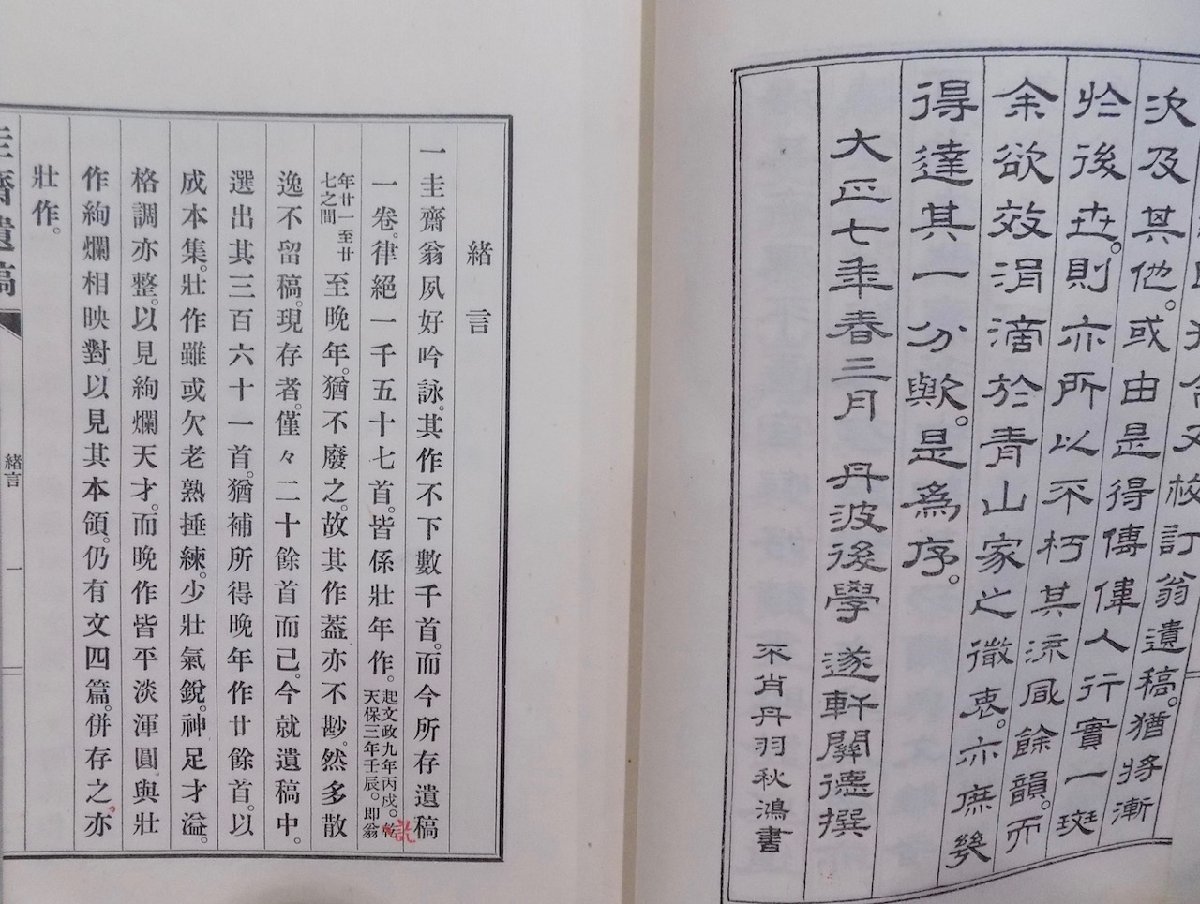 又校訂翁遺稿。猶將漸
次及其他。或由是得傳偉人行實一斑
於後世。則亦所以不朽其流風餘韻。而
余欲效涓滴於青山家之微衷。亦庶幾
得達其一分歟。是爲序。
大正七年春三月 丹波後學 遂軒關德撰
不肖丹羽秋鴻書
緒言
一圭齋翁夙好吟詠。其作不下數千首。而今所存遺稿
一卷。律絕一千五十七首。皆係壯年作。起文政九年丙戌。乾訖天保三年壬辰。即翁
年廿一至廿七之間至晚年。猶不廢之。故其作蓋亦不尠。然多散
逸不留稿。現存者。僅々二十餘首而已。今就遺稿中。
選出其三百六十一首。猶補所得晚年作廿餘首。以
成本集。壯作雖或欠老熟捶練。少壯氣銳。神足才溢。
格調亦整。以見絢爛天才。而晚作皆平淡渾圓與壯
作絢爛相映對以見其本領。仍有文四篇。併存之、亦
壯作。
圭齋遺稿
緒言
一